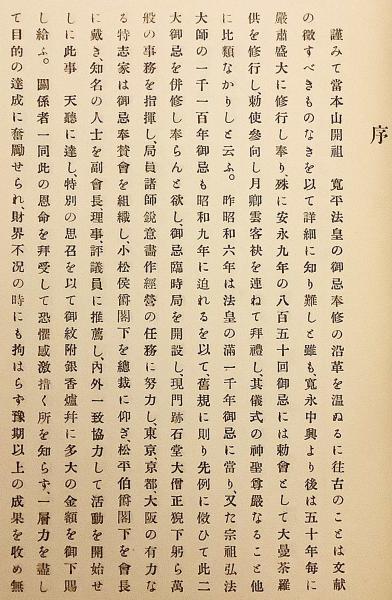 序
謹みて當本山開祖　寬平法皇の御忌奉修の沿革を溫ぬるに往古のことは文獻
の徵すべきものなきを以て詳細に知り難しと雖も、寬永中興より後は五十年每に
嚴肅盛大に修行し奉り、殊に安永九年の八百五十回御忌には勅會として大曼荼羅
供を修行し、勅使參向し月卿雲客袂を連ねて拜禮し、其儀式の神聖尊嚴なること他
に比類なかりしと云ふ。　昨昭和六年は法皇の滿一千年御忌に當り、又た宗祖弘法
大師の一千一百年御忌も昭和九年に迫れるを以て、舊規に則り先例に倣ひて此二
大御忌を併修し奉らんと欲し、御忌臨時局を開設し、現門跡石堂大僧正猊下躬ら萬
般の事務を指揮し、局員諸師銳意畵作經營の任務に努力し、東京、京都、大阪の有力な
る特志家は御忌奉贊會を組織し、小松侯爵閣下を總裁に仰ぎ、松平伯爵閣下を會長
に戴き、知名の人士を副會長、理事、評議員に推薦し、內外一致協力して活動を開始せ
しに此事　天聽に達し、特別の思召を以て御紋附銀香爐幷に多大の金額を御下賜
し給ふ。　關係者一同此の恩命を拜受して恐懼感激措く所を知らず、一層力を盡し
て目的の達成に奮勵せられ、財界不況の時にも拘はらず豫期以上の成果を收め無